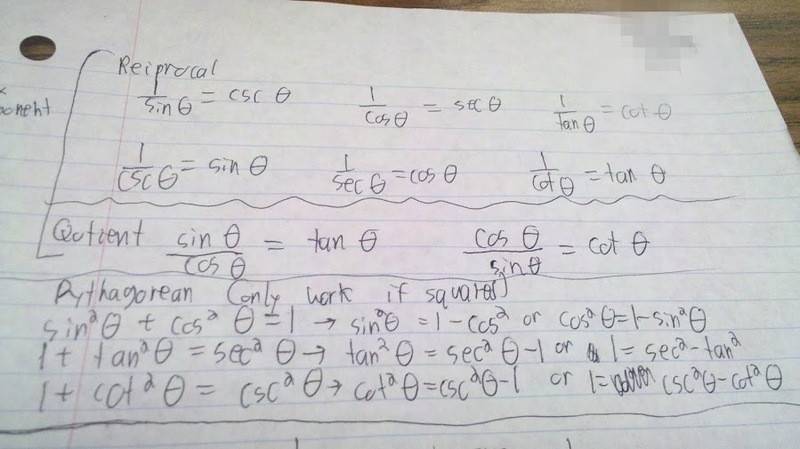 Reiprocal
1/sin θ = csc θ 1/cos θ = sec θ 1/tan θ = cot θ
1/csc θ = sin θ 1/sec θ = cos θ 1/cot θ = tan θ
Qutient sin θ/cos θ = tan θ cos θ/sin θ = cot θ
Pythagorean (only work if squared)
sin²θ + cos² θ = 1 → sin²θ = 1 - cos² or cos²θ = 1 - sin²θ
1 + tan²θ = sec² θ → tan²θ = sec²θ - 1 or 1 = sec² - tan²
1 + cot²θ = csc²θ → cot²θ = csc²θ - 1 or 1 = csc²θ - cot²θ